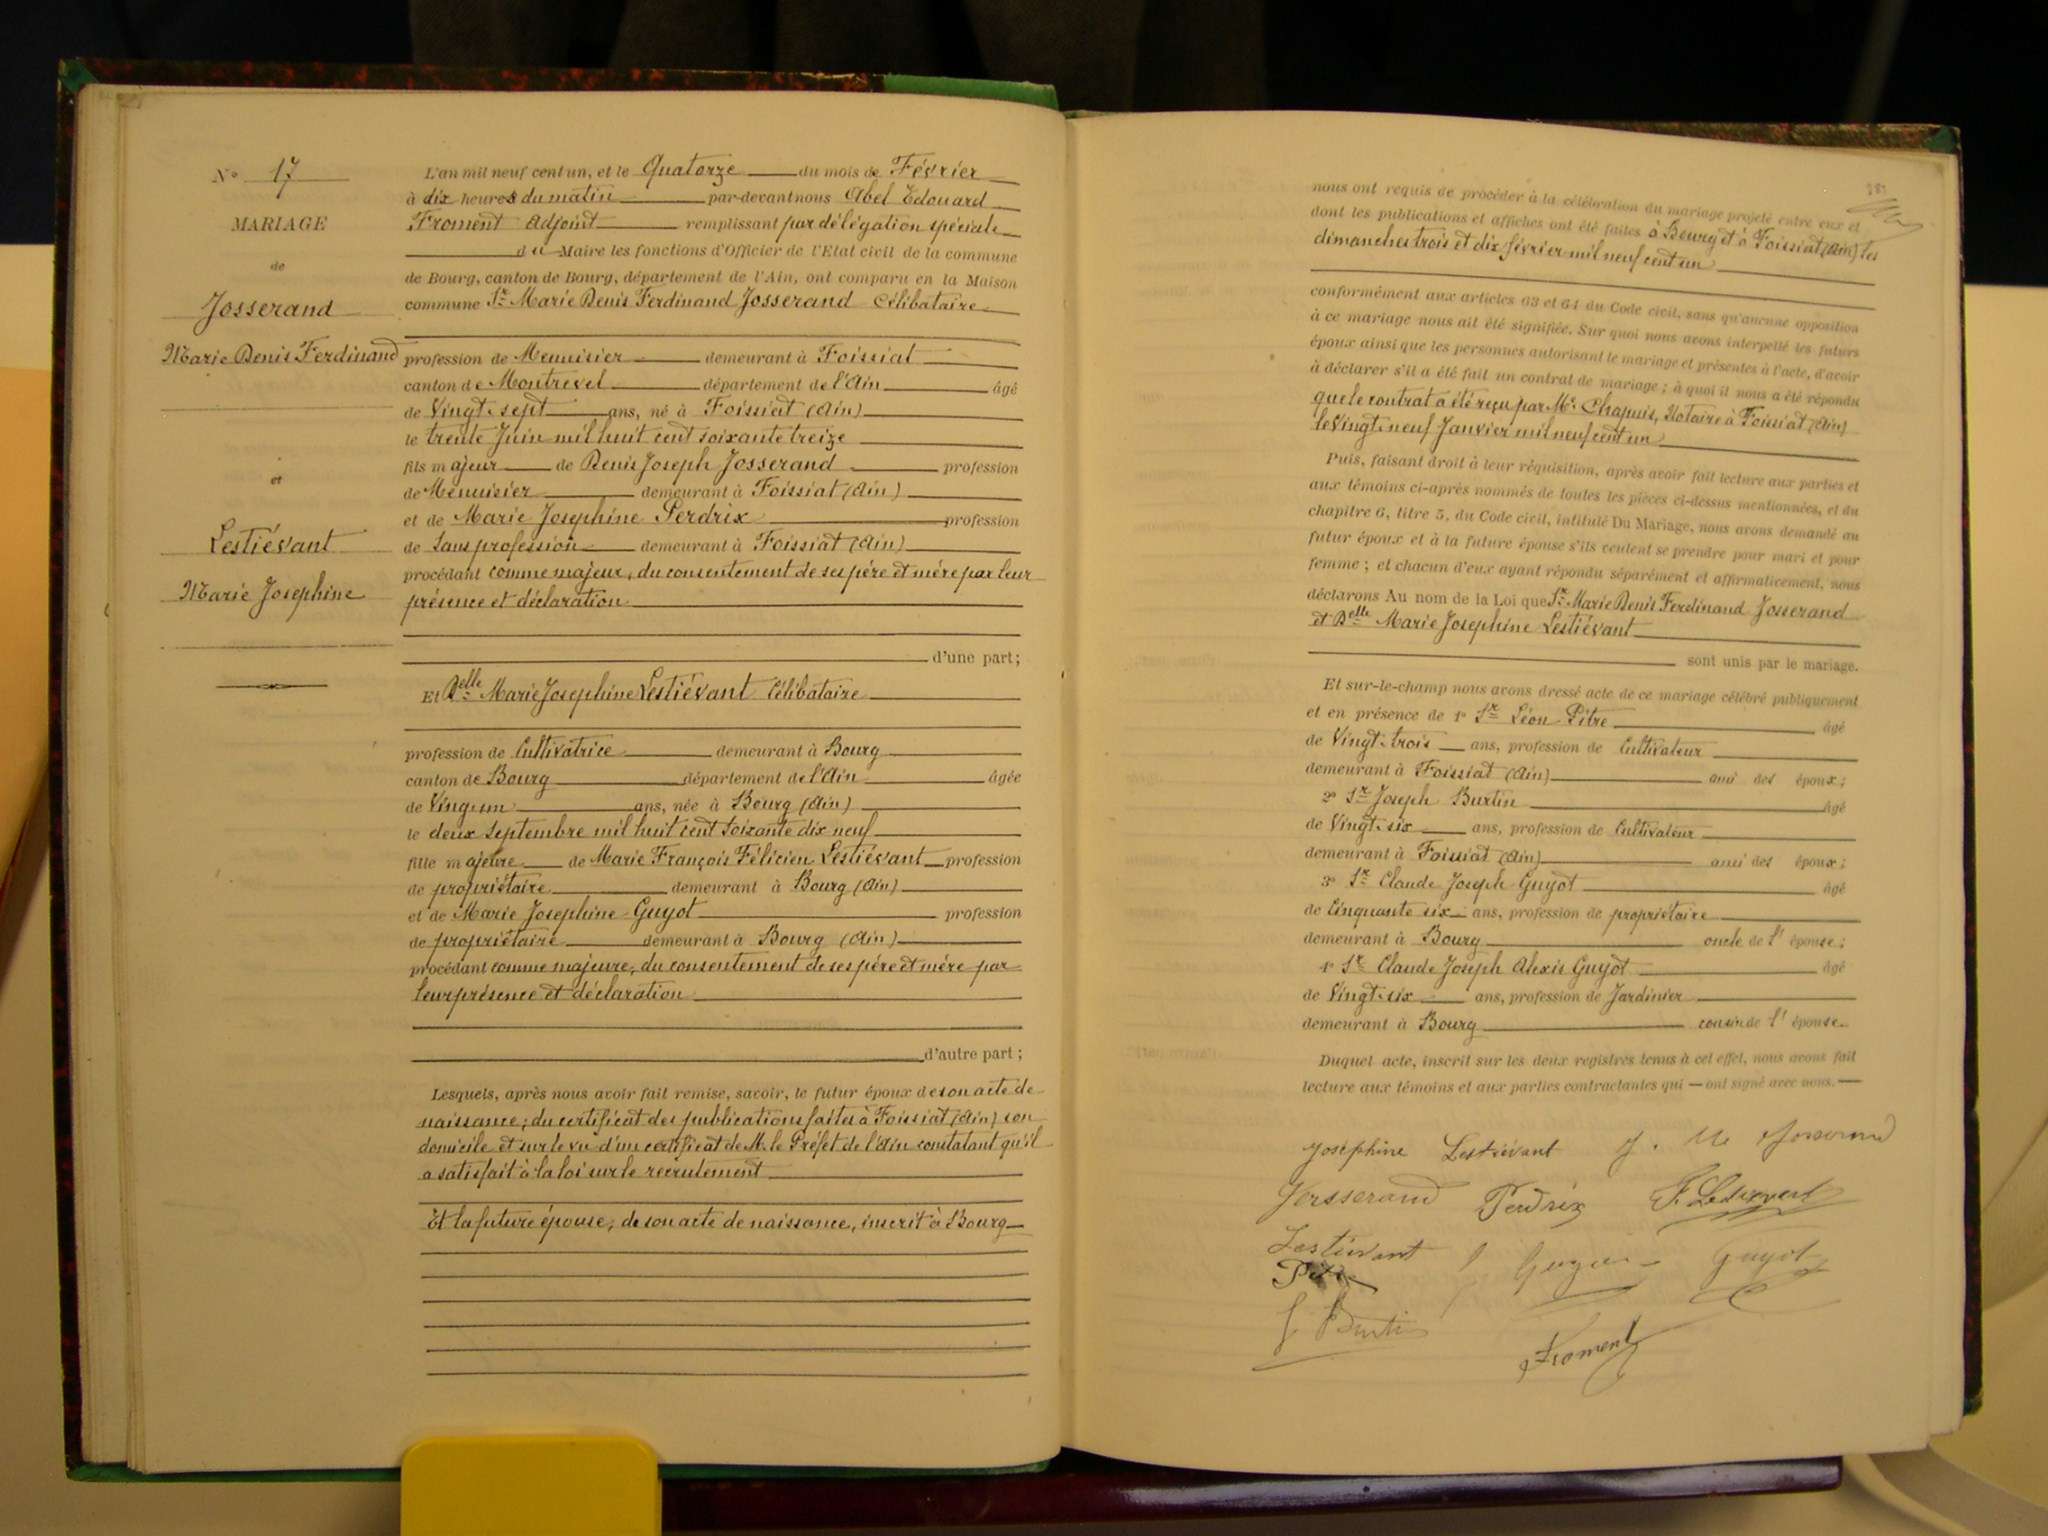 N° 17
MARIAGE
de
Josserand
Marie Denis Ferdinand
et
Lestiévant
Marie Josephine
L'an mil neuf cent un, et le Quatorze du mois de Février
à dix heures du matin par-devant nous Abel Edouard
Froment Adjoint remplissant par délégation spéciale
du Maire les fonctions d'Officier de l'Etat civil de la commune
de Bourg, canton de Bourg, département de l'Ain, ont comparu en la Maison
commune Sr Marie Denis Ferdinand Josserand Célibataire
profession de Menuisier demeurant à Foissiat
canton de Montrevel département de l'Ain âgé
de Vingt-sept ans, né à Foissiat (Ain)
le trente Juin mil huit cent soixante treize
fils majeur de Denis Joseph Josserand profession
de Menuisier demeurant à Foissiat (Ain)
et de Marie Josephine Perdrix profession
de Sans profession demeurant à Foissiat (Ain)
procédant comme majeur, du consentement de ses père et mère par leur
présence et déclaration
d'une part;
Et Delle Marie Josephine Lestiévant Célibataire
profession de Cultivatrice demeurant à Bourg
canton de Bourg département de l'Ain âgée
de Vingt un ans, née à Bourg (Ain)
le deux Septembre mil huit cent Soixante dix neuf
fille majeure de Marie François Félicien Lestiévant profession
de propriétaire demeurant à Bourg (Ain)
et de Marie Josephine Guyot profession
de propriétaire demeurant à Bourg (Ain)
procédant comme majeure, du consentement de ses père et mère par
leur présence et déclaration
d'autre part;
Lesquels, après nous avoir fait remise, savoir, le futur époux de son acte de
naissance; du certificat des publications faites à Foissiat (Ain) son
domicile et sur le vu d'un certificat de M. le Préfet de l'Ain constatant qu'il
a satisfait à la loi sur le recrutement
Et la future épouse, de son acte de naissance, inscrit à Bourg
nous ont requis de procéder à la célébration du mariage projeté entre eux et
dont les publications et affiches ont été faites à Bourg et à Foissiat (Ain) les
dimanches trois et dix février mil neuf cent un
conformément aux articles 63 et 64 du Code civil, sans qu'aucune opposition
à ce mariage nous ait été signifiée. Sur quoi nous avons interpellé les futurs
époux ainsi que les personnes autorisant le mariage et présentes à l'acte, d'avoir
à déclarer s'il a été fait un contrat de mariage; à quoi il nous a été répondu
que le contrat a été reçu par Me Chapuis, Notaire à Foissiat (Ain)
le Vingt-neuf Janvier mil neuf cent un
Puis, faisant droit à leur réquisition, après avoir fait lecture aux parties et
aux témoins ci-après nommés de toutes les pièces ci-dessus mentionnées, et du
chapitre 6, titre 5, du Code civil, intitulé Du Mariage, nous avons demandé au
futur époux et à la future épouse s'ils veulent se prendre pour mari et pour
femme; et chacun d'eux ayant répondu séparément et affirmativement, nous
déclarons Au nom de la Loi que Sr Marie Denis Ferdinand Josserand
et Delle Marie Josephine Lestiévant
sont unis par le mariage.
Et sur-le-champ nous avons dressé acte de ce mariage célébré publiquement
et en présence de 1° Sr Léon Pitre âgé
de Vingt-trois ans, profession de Cultivateur
demeurant à Foissiat (Ain) ami des époux;
2° Sr Joseph Burtin âgé
de Vingt-six ans, profession de Cultivateur
demeurant à Foissiat (Ain) ami des époux;
3° Sr Claude Joseph Guyot âgé
de Cinquante six ans, profession de propriétaire
demeurant à Bourg oncle de l'épouse;
4° Sr Claude Joseph Alexis Guyot âgé
de Vingt-six ans, profession de Jardinier
demeurant à Bourg cousin de l'épouse.
Duquel acte, inscrit sur les deux registres tenus à cet effet, nous avons fait
lecture aux témoins et aux parties contractantes qui ont signé avec nous.
Joséphine Lestievant J. M Josserand
Josserand Perdrix
Lestievant Guyot
J Burtin
Froment